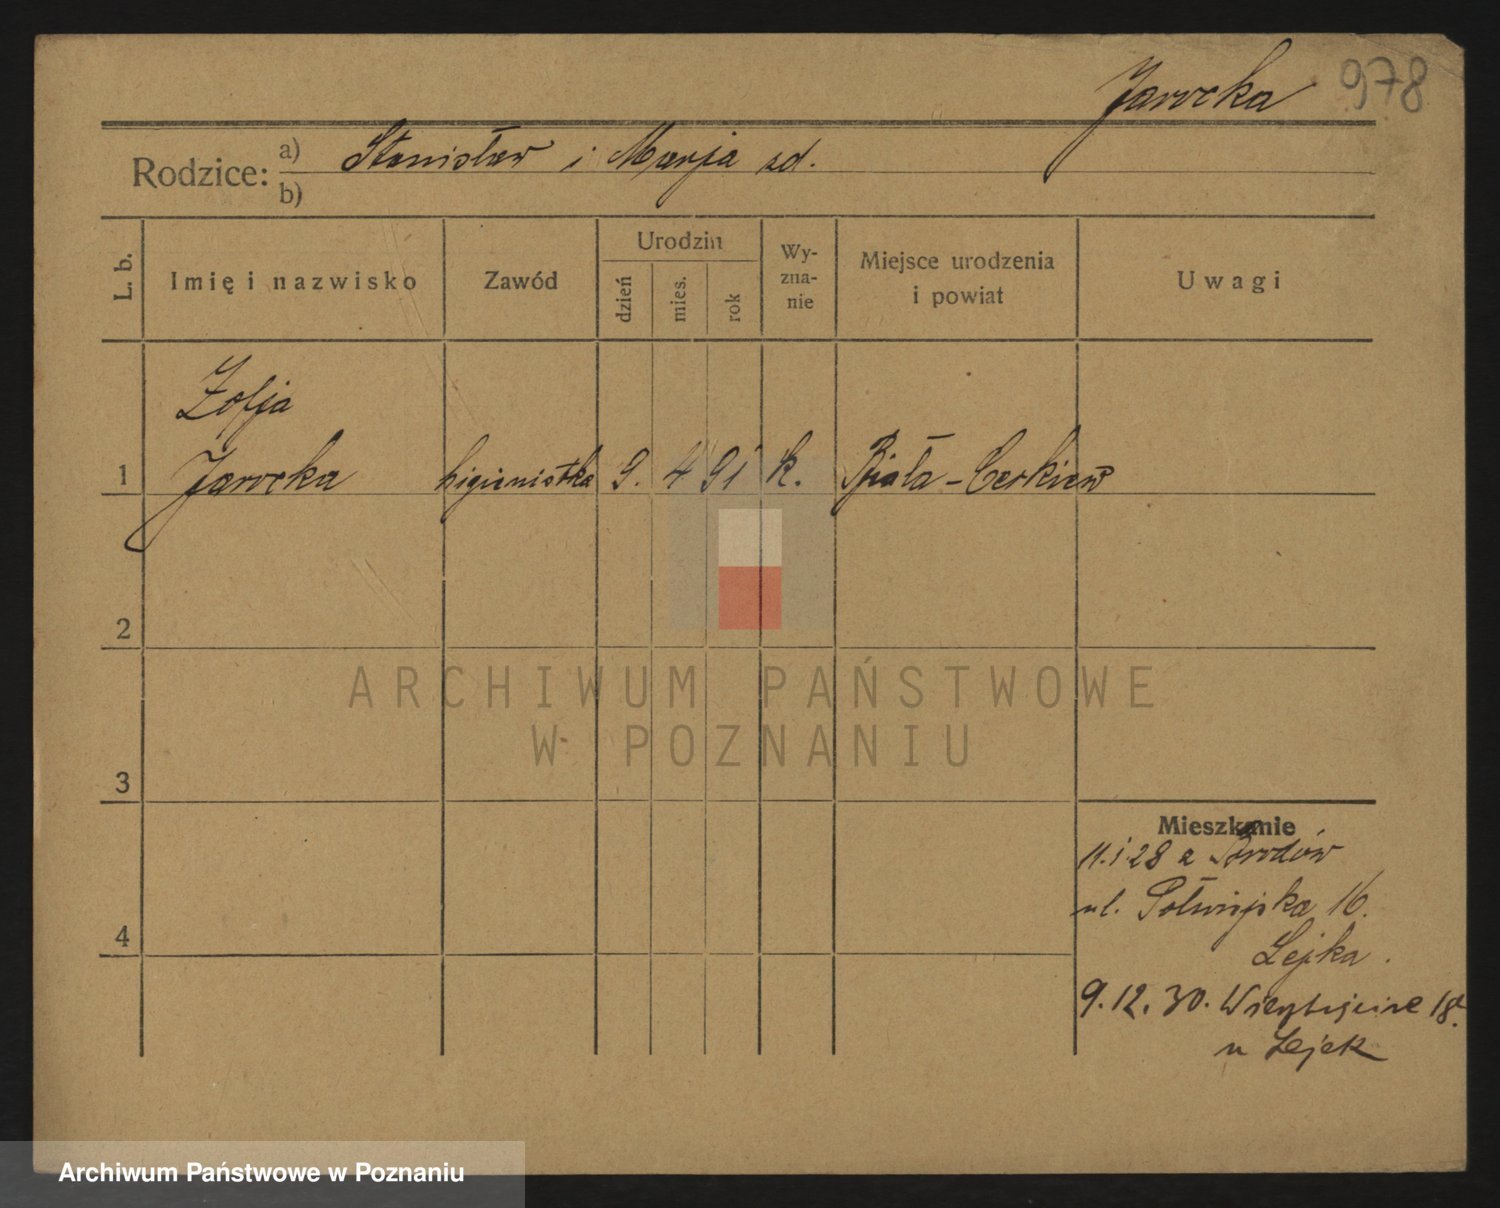 Jarocka 978
Rodzice: a) Stanisław i Marja zd.
b)
L. b.
Imię i nazwisko
Zawód
Urodzin
dzień
mies.
rok
Wy-
zna-
nie
Miejsce urodzenia
i powiat
Uwagi
Zofja
1 Jarocka higienistka 9. 4 91 k. Biała-Cerkiew
2
3
4
Mieszkanie
11.i 28 z Brodów
ul. 16.
Lejka.
9.12.30. 18
u Lejek
ARCHIWUM PAŃSTWOWE
W POZNANIU
Archiwum Państwowe w Poznaniu